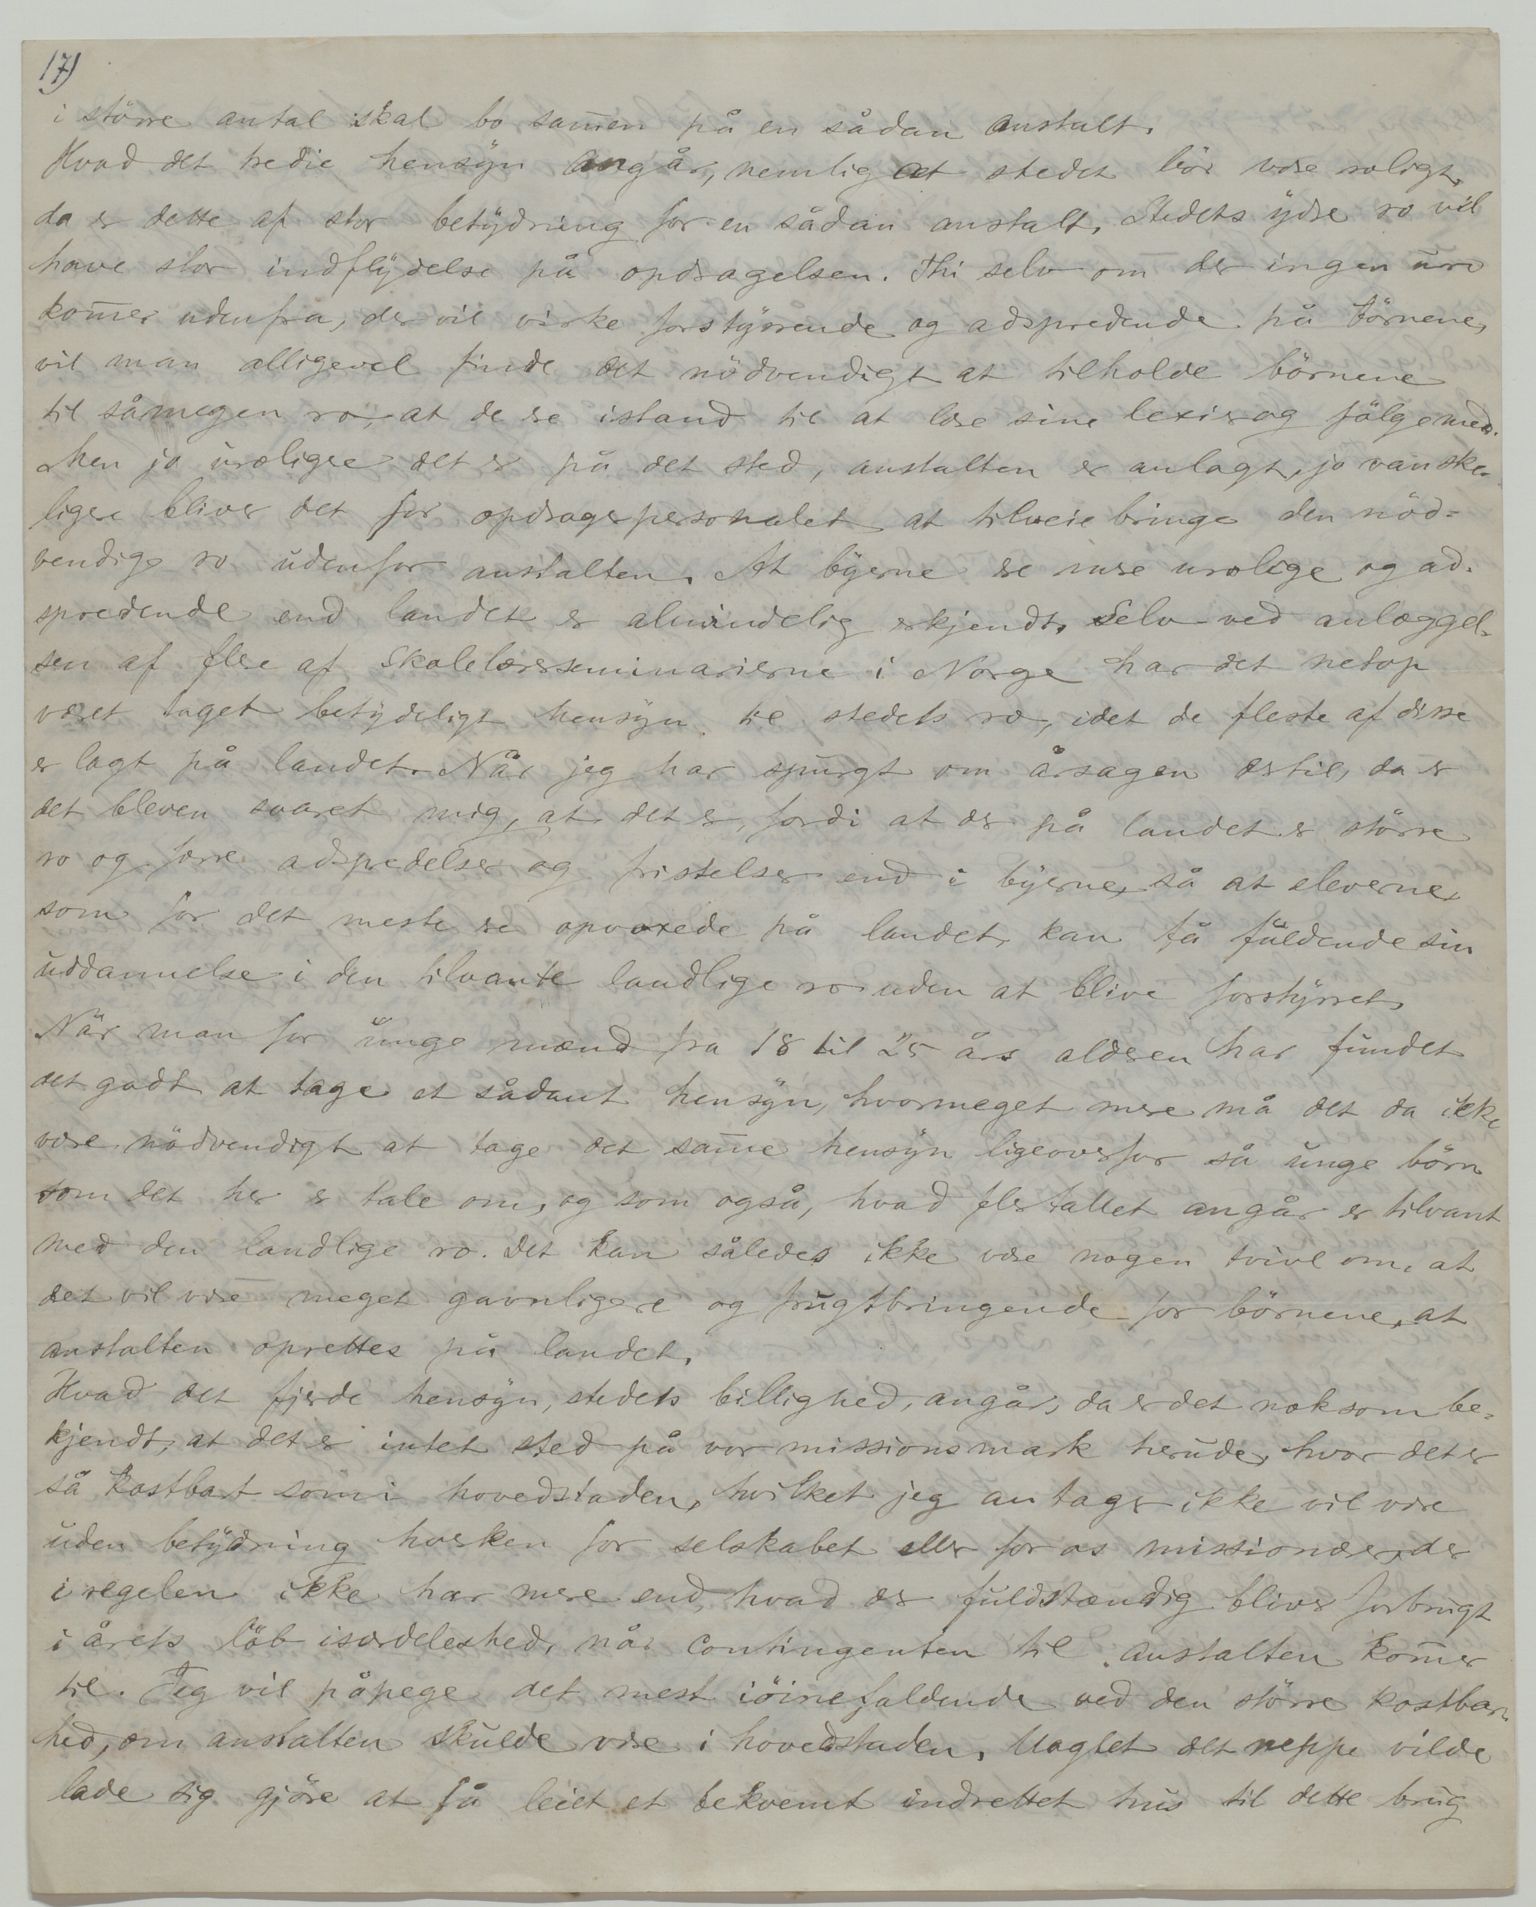 17)
i större antal skal bo sam̅en på en sådan anstalt.
Hvad det tredie hensyn angår, nemlig at stedet bör være roligt,
da er dette af stor betydning for en sådan anstalt. Stedets ydre ro vil
have stor indflydelse på opdragelsen. Thi selv om der ingen uro
kom̅er udenfra, der vil virke forstyrrende og adspredende på börnene,
vil man alligevel finde det nödvendigt at tilholde börnene
til såmegen ro, at de ere istand til at læse sine lexier og fölge med.
Men jo uroligere det er på det sted, anstalten er anlagt, jo vanske-
ligere bliver det for opdragerpersonalet at tilveiebringe den nöd-
vendige ro udenfor anstalten. At byerne ere mere urolige og ad-
spredende end landet er almindelig erkjendt. Selv ved anlæggel-
sen af flere af skolelærerseminarierne i Norge har det netop
været taget betydeligt hensyn til stedets ro, idet de fleste af disse
er lagt på landet. Når jeg har spurgt om årsagen dertil, da er
det bleven svaret mig, at det er, fordi at der på landet er större
ro og færre adspredelser og fristelser end i byerne, så at eleverne,
som for det meste ere opvoxede på landet, kan få fuldende sin
uddannelse i den tilvante landlige ro uden at blive forstyrret.
Når man for unge mænd fra 18 til 25 års alderen har fundet
det godt at tage et sådant hensyn, hvormeget mere må det da ikke
være nödvendigt at tage det sam̅e hensyn ligeoverfor så unge börn
som det her er tale om, og som også, hvad flertallet angår er tilvant
med den landlige ro. Det kan således ikke være nogen tvivl om, at
det vil være meget gavnligere og frugtbringende for börnene, at
anstalten oprettes på landet.
Hvad det fjerde hensyn, stedets billighed, angår, da er det noksom be-
kjendt, at det er intet sted på vor missionsmark herude, hvor det er
så kostbart som i hovedstaden, hvilket jeg antager ikke vil være
uden betydning hverken for selskabet eller for os missionærer, der
i regelen ikke har mere end, hvad der fuldstændig bliver forbrugt
i årets löb isærdeleshed, når contingenten til anstalten kom̅er
til. Jeg vil påpege det mest iöinefaldende ved den större kostbar-
hed, om anstalten skulde være i hovedstaden. Uagtet det neppe vilde
lade sig gjöre at få leiet et bekvemt indrettet hus til dette brug